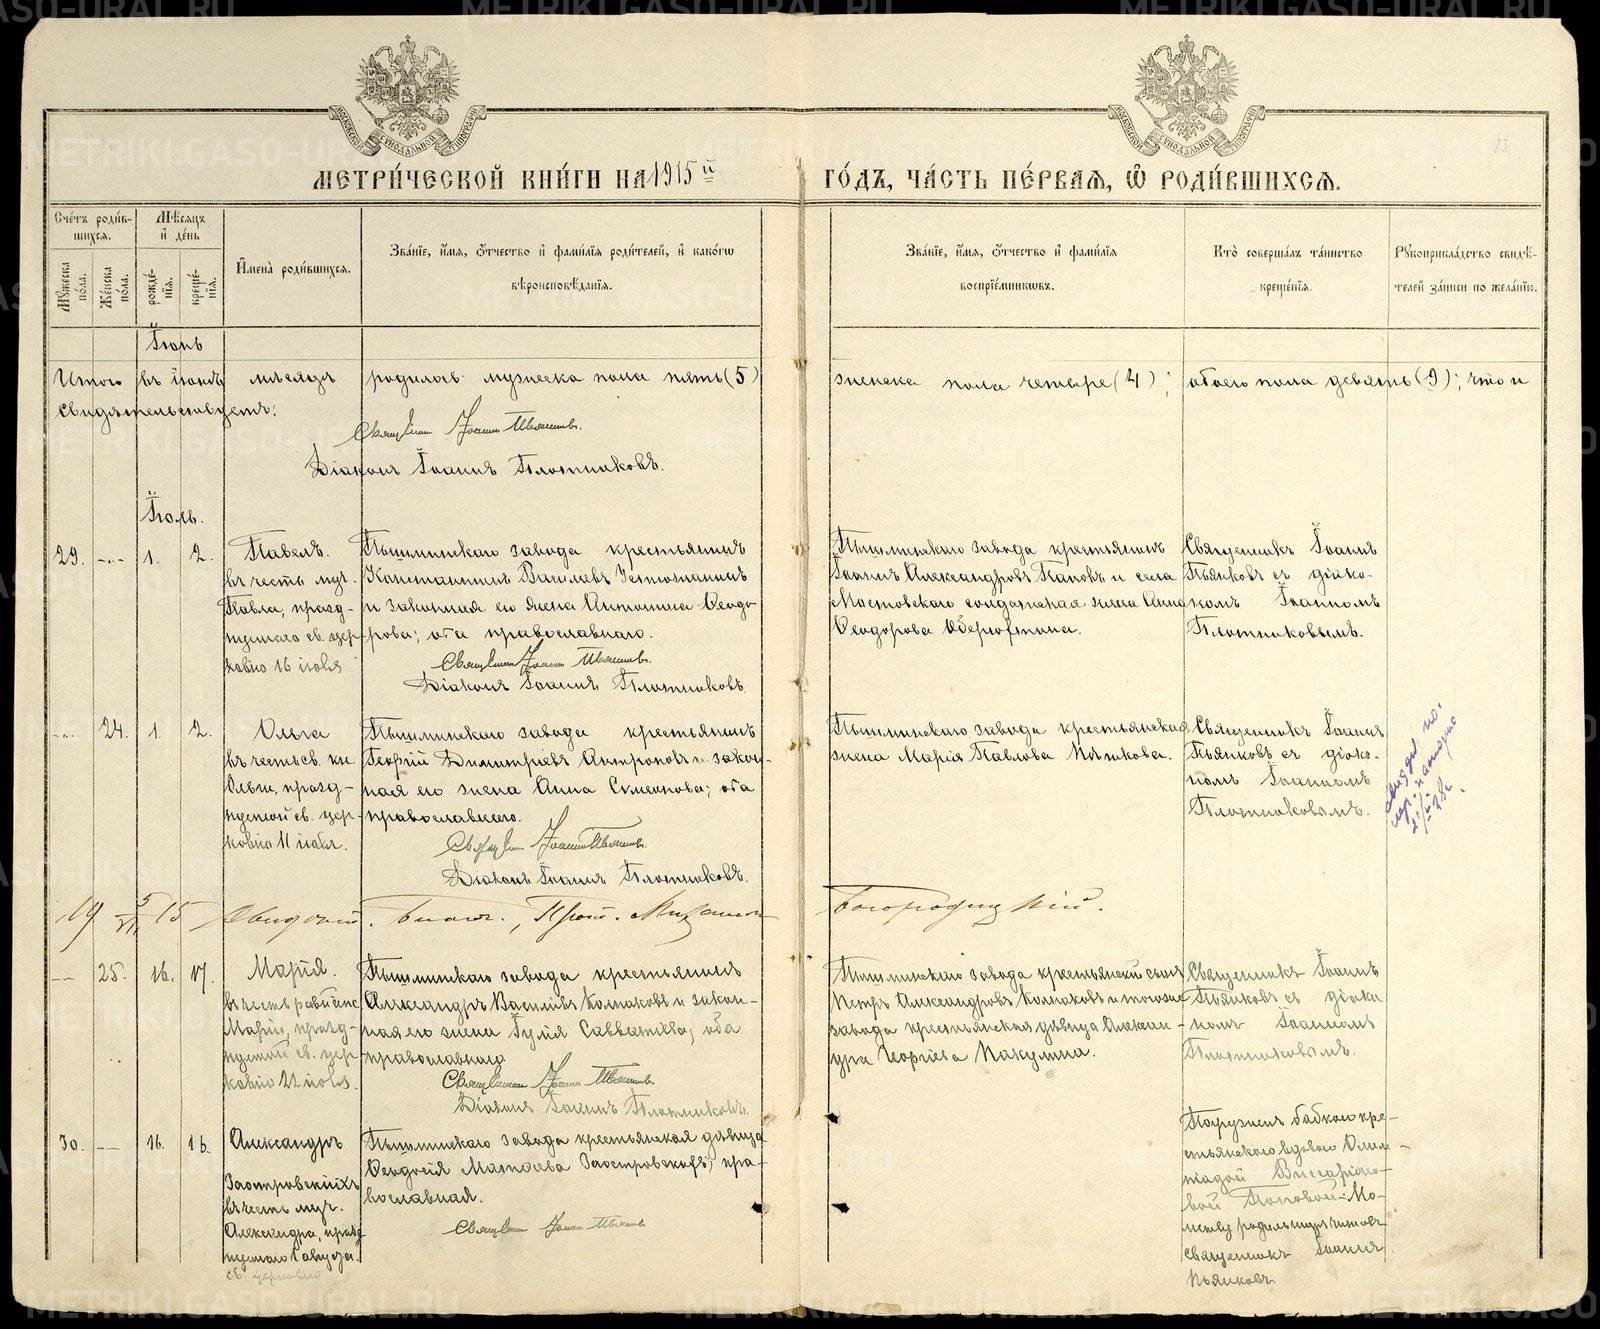 МЕТРИ́ЧЕСКОЙ КНИ́ГИ НА 1915 й ГО́ДЪ, ЧА́СТЬ ПЕ́РВАЯ, Ѡ РОДИ́ВШИХСЯ.
Счéтъ роди́в-
шихся.
Мꙋ́жеска по́ла.
Же́нска по́ла.
Мѣ́сяцъ и҆ де́нь
рожде́-
нїя.
креще́-
нїя.
И҆мена̀ роди́вшихся.
Зва́нїе, и҆́мя, ѻ҆́тчество и҆ фами́лїя роди́телей, и҆ како́гѡ
вѣроисповѣ́данїя.
Зва́нїе, и҆́мя, ѻ҆́тчество и҆ фами́лїя
воспрїе́мникѡвъ.
Кто̀ соверша́лъ та́инство
креще́нїя.
Рꙋкоприкла́дство свидѣ́-
телей за́писи по жела́нїю.
Іюнь
Итого въ іюнѣ мѣсяцѣ родилось мужеска пола пять (5) женска пола четыре (4); обоего пола девять (9); что и
свидѣтельствуемъ:
Священникъ Іоаннъ Пьянковъ.
Діаконъ Іоаннъ Плотниковъ.
Іюль.
29. -"- 1. 2.
Павелъ.
въ честь муч.
Павла, празд-
нуемаго св. цер-
ковію 16 іюля
Пышминскаго завода крестьянинъ
Константинъ Васильевъ Устюжанинъ
и законная его жена Антонина Ѳеодо-
рова; оба православнаго.
Священникъ Іоаннъ Пьянковъ.
Діаконъ Іоаннъ Плотниковъ.
Пышминскаго завода крестьянинъ
Іоаннъ Александровъ Поповъ и села
Мостовскаго солдатская жена Анна
Ѳеодорова
Священникъ Іоаннъ
Пьянковъ съ діако-
номъ Іоанномъ
Плотниковымъ.
-"- 24. 1. 2.
Ольга
въ честь св. кн
Ольги, празд-
нуемой св. цер-
ковію 11 іюля.
Пышминскаго завода крестьянинъ
Георгій Димитріевъ Антроповъ и закон-
ная его жена Анна Семенова; оба
православнаго.
Священникъ Іоаннъ Пьянковъ.
Діаконъ Іоаннъ Плотниковъ.
Пышминскаго завода крестьянская
жена Марія Павлова Пѣшкова.
Священникъ Іоаннъ
Пьянковъ съ діако-
номъ Іоанномъ
Плотниковымъ.
19 15 Прот. Богородицкій.
-- 25. 16. 17.
Марія.
въ честь
Маріи, празд-
нуемой св. цер-
ковію 22 іюля.
Пышминскаго завода крестьянинъ
Александръ Васильевъ Колмаковъ и закон-
ная его жена Іулія Савватіева; оба
православнаго
Священникъ Іоаннъ Пьянковъ.
Діаконъ Іоаннъ Плотниковъ.
Пышминскаго завода крестьянскій сынъ
Петръ Александровъ Колмаковъ и тогоже
завода крестьянская дѣвица Алексан-
дра Георгіева Пакулина.
Священникъ Іоаннъ
Пьянковъ съ діако
номъ Іоанномъ
Плотниковымъ.
30. -- 16. 16.
Александръ
Заостровскихъ
въ честь муч.
Александра, празд
нуемаго 1 августа.
св. церковію
Пышминскаго завода крестьянская дѣвица
Ѳеодосія Матѳеева Заостровскихъ; пра-
вославная.
Священникъ Іоаннъ Пьянковъ
Погруженъ бабкою кре-
стьянскою вдовою Олим-
піадой Виссаріоно-
вой Поповой. Мо-
литву родильницѣ читалъ
священникъ Іоаннъ
Пьянковъ.